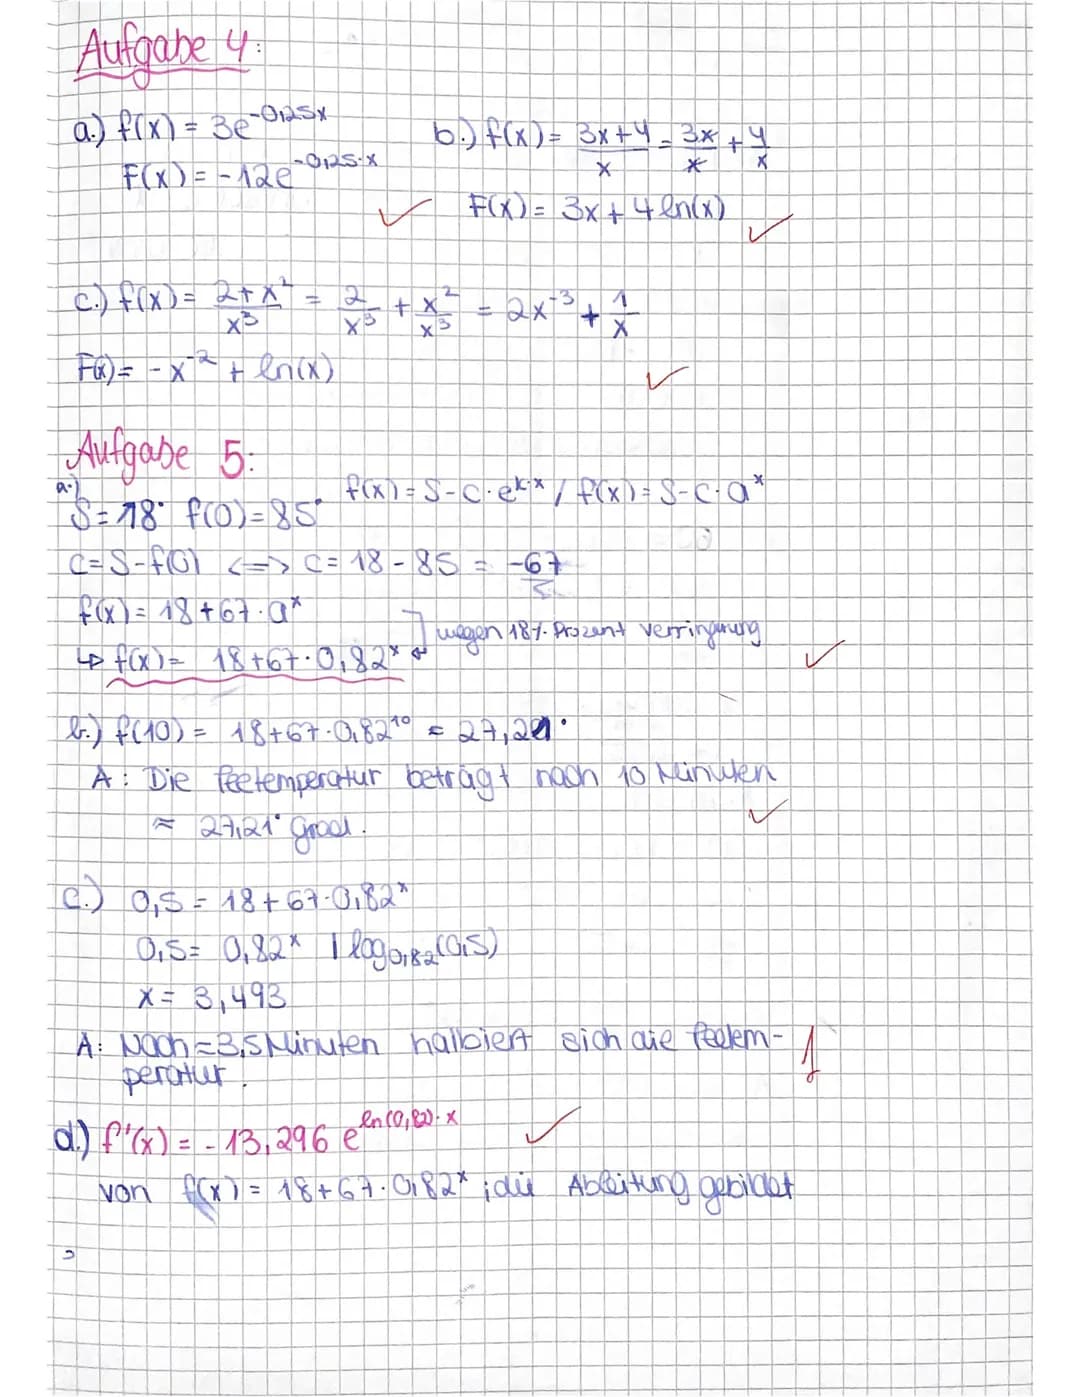 Aufgabe 4:
a.) f(x) = 3e^-0,25x
F(x) = -12e^-0,25·x
b.) f(x) = (3x+4)/x = 3x/x + 4/x
F(x) = 3x + 4 ln(x)
c.) f(x) = (2+x²)/x³ = 2/x³ + x²/x³ = 2x^-3 + 1/x
F(x) = -x^-2 + ln(x)
Aufgabe 5:
a.)
S = 18° f(0) = 85° f(x) = S-C·e^k·x / f(x) = S-C·a^x
C = S-f(0) <=> C = 18 - 85 = -67
f(x) = 18+67·a^x
↳ f(x) = 18+67·0,82^x wegen 18%. Prozent verringerung
b.) f(10) = 18+67·0,82^10 = 27,21°
A: Die Teetemperatur beträgt nach 10 Minuten
≈ 27,21° Grad.
c.) 0,5 = 18+67·0,82^x
0,5 = 0,82^x | log0,82(0,5)
x = 3,493
A: Nach ≈ 3,5 Minuten halbiert sich die Teetem-
peratur.
d.) f'(x) = -13,296 e^ln(0,82)·x
von f(x) = 18+67·0,82^x ; die Ableitung gebildet